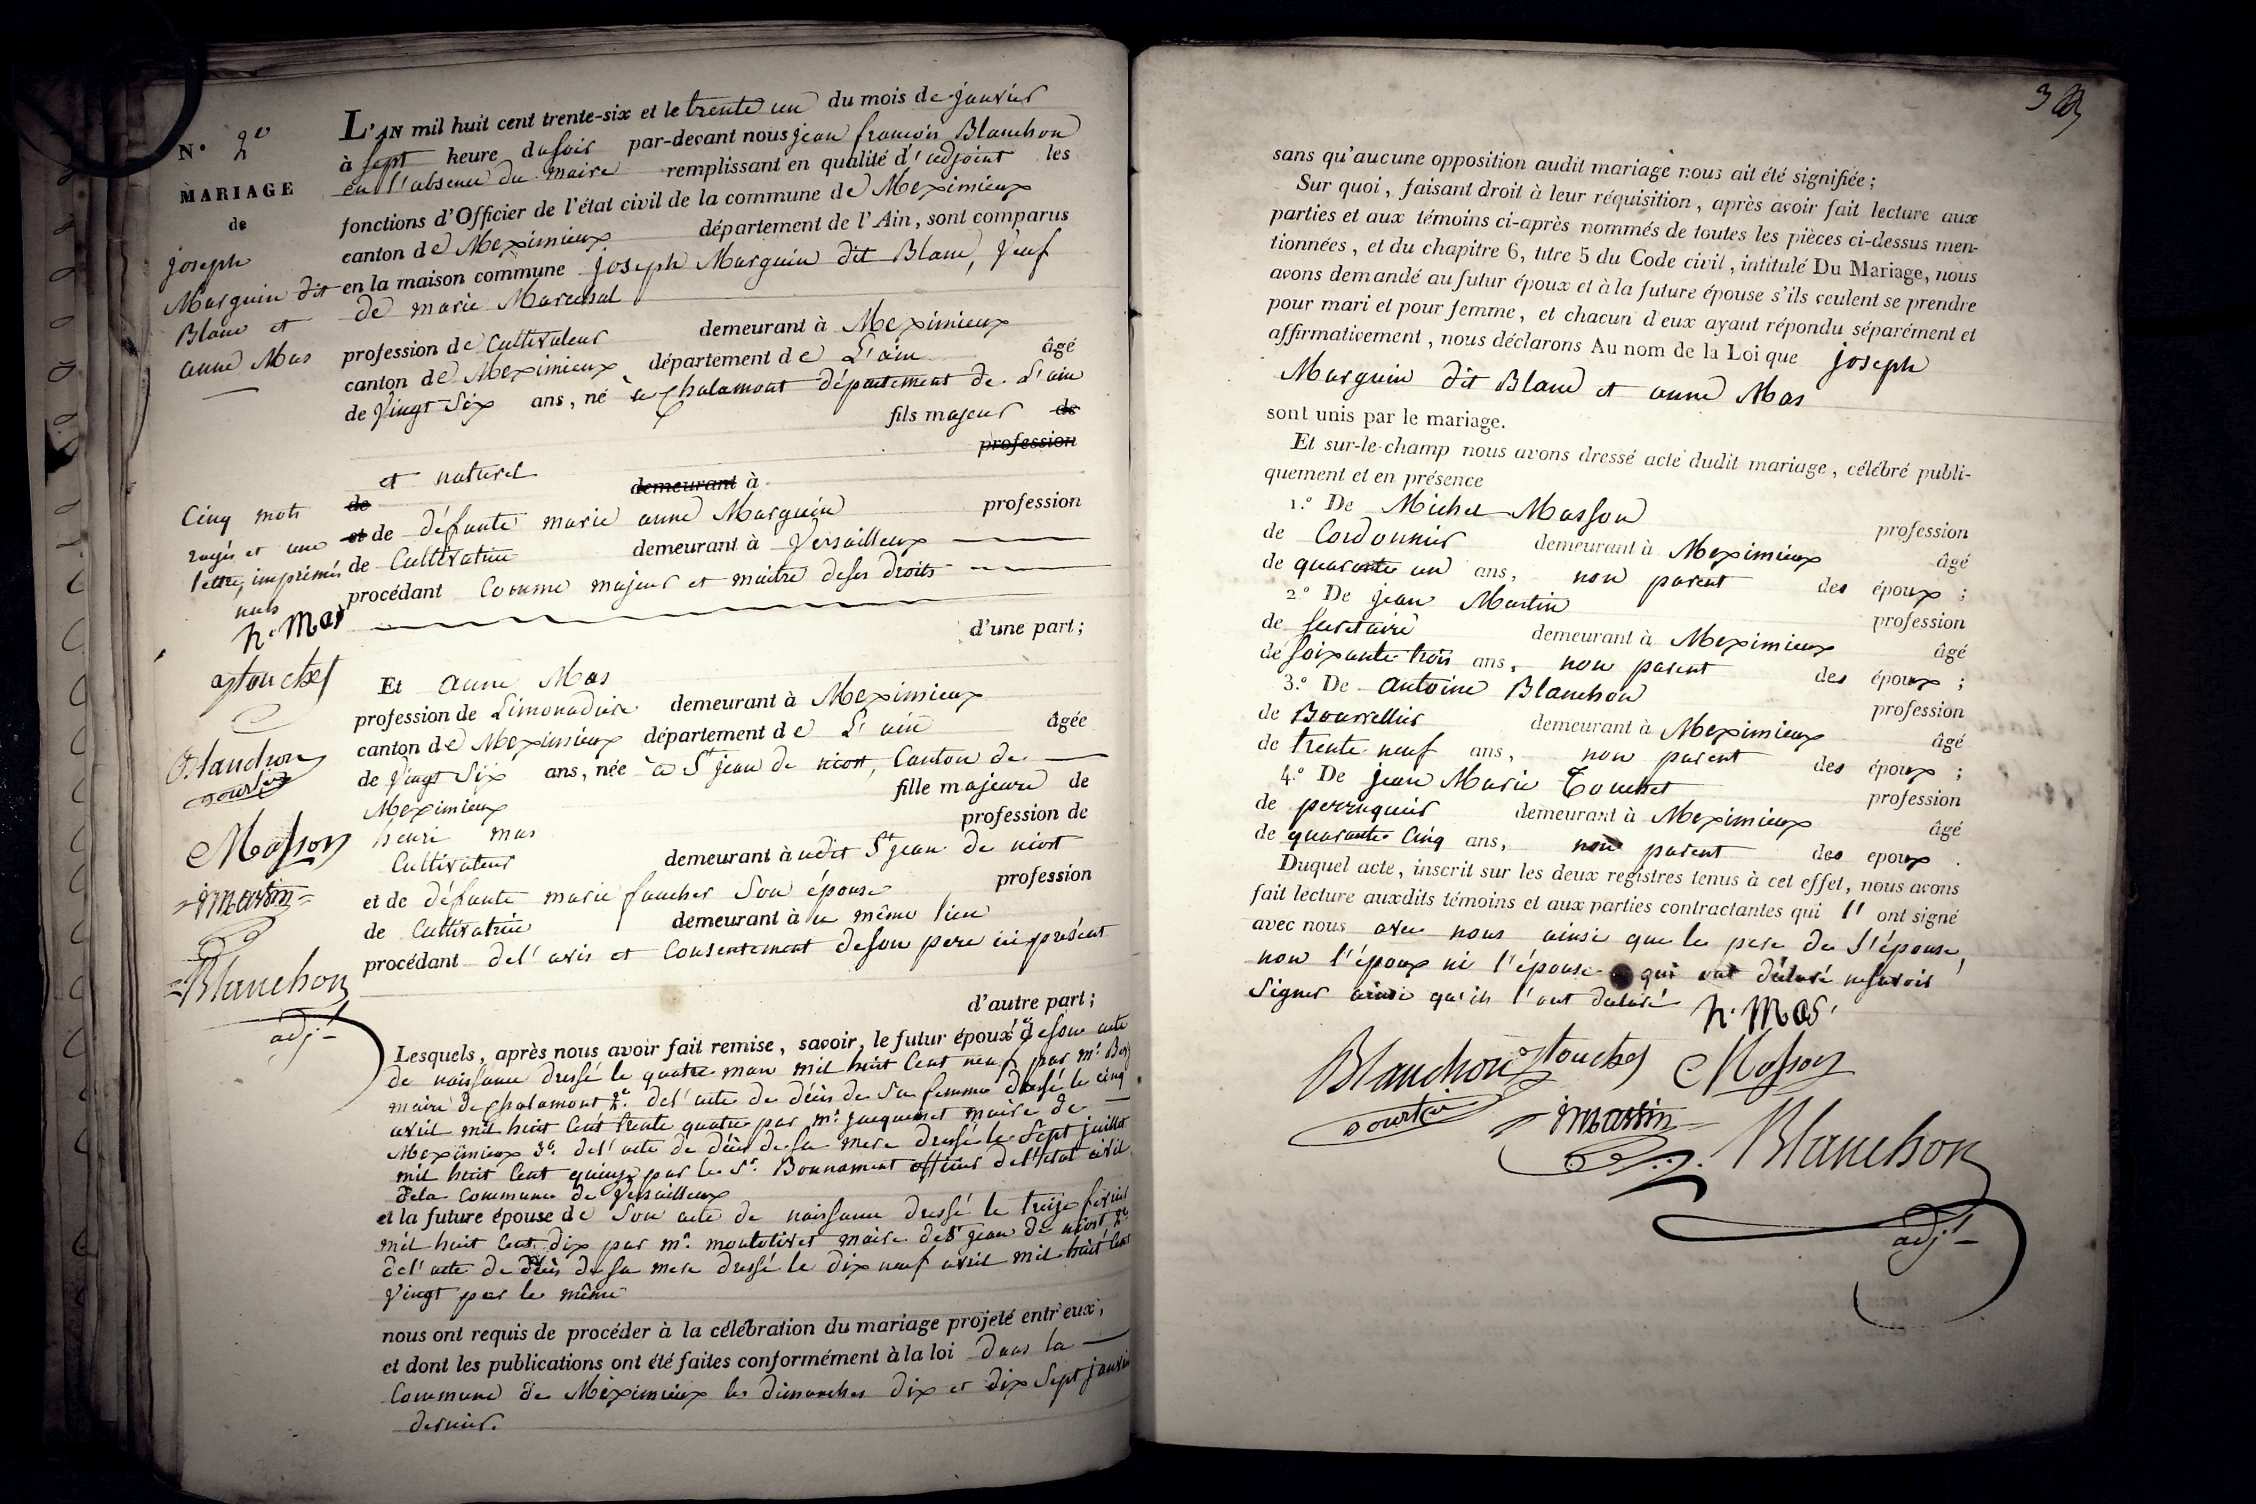 N° 2e
MARIAGE
de
joseph
Marguin dit
Blanc et
anne Mas
Cinq mots
rayés et une
lettre, imprimés
nuls
h. Mas
touchet
Blanchon
Masson
martin
Blanchon
adjt
L'AN mil huit cent trente-six et le trente un du mois de janvier
à sept heure du soir par-devant nous jean françois Blanchon
en l'absence du maire remplissant en qualité d'adjoint les
fonctions d'Officier de l'état civil de la commune de Meximieux
canton de Meximieux département de l'Ain, sont comparus
en la maison commune joseph Marguin dit Blanc, veuf
de marie Marechal
profession de Cultivateur demeurant à Meximieux
canton de Meximieux département de L'ain âgé
de vingt six ans, né à Chalamont département de L'ain
fils majeur de
profession
et naturel
de demeurant à
et de défunte marie anne Marguin profession
de Cultivatrice demeurant à Versailleux
procédant Comme majeur et maitre de ses droits
d'une part;
Et anne Mas
profession de Limonadiere demeurant à Meximieux
canton de Meximieux département de L'ain âgée
de vingt six ans, née à St jean de niost, Canton de
Meximieux fille majeure de
henri mas profession de
Cultivateur demeurant à udit St jean de niost
et de défunte marie faucher son épouse profession
de Cultivatrice demeurant à u même lieu
procédant de l'avis et Consentement de son pere ici présent
d'autre part;
Lesquels, après nous avoir fait remise, savoir, le futur époux de son acte
de naissance dressé le quatre mars mil huit Cent neuf par mr
maire de Chalamont 2° de l'acte de décès de sa femme dressé le cinq
avril mil huit Cent trente quatre par mr jacquemet maire de
Meximieux 3° de l'acte de décès de sa mere dressé le sept juillet
mil huit Cent quinze par le Sr. Bonnamant officier de l'état civil
de la Commune de Versailleux
et la future épouse de son acte de naissance dressé le treize février
mil huit Cent dix par mr. moutotivet maire de St jean de niost 2°
de l'acte de décès de sa mere dressé le dix neuf avril mil huit Cent
vingt par le même
nous ont requis de procéder à la célébration du mariage projeté entr'eux,
et dont les publications ont été faites conformément à la loi dans la
Commune de Meximieux les dimanches dix et dix sept janvier
dernier.
3
sans qu'aucune opposition audit mariage nous ait été signifiée;
Sur quoi, faisant droit à leur réquisition, après avoir fait lecture aux
parties et aux témoins ci-après nommés de toutes les pièces ci-dessus men-
tionnées, et du chapitre 6, titre 5 du Code civil, intitulé Du Mariage, nous
avons demandé au futur époux et à la future épouse s'ils veulent se prendre
pour mari et pour femme, et chacun d'eux ayant répondu séparément et
affirmativement, nous déclarons Au nom de la Loi que joseph
Marguin dit Blanc et anne Mas
sont unis par le mariage.
Et sur-le-champ nous avons dressé acte dudit mariage, célébré publi-
quement et en présence
1.° De Michel Masson profession
de Cordonnier demeurant à Meximieux âgé
de quarante un ans, non parent des époux;
2.° De jean Martin profession
de secretaire demeurant à Meximieux âgé
de soixante trois ans, non parent des époux;
3.° De antoine Blanchon profession
de Bourrellier demeurant à Meximieux âgé
de trente neuf ans, non parent des époux;
4.° De jean Marie Touchet profession
de perruquier demeurant à Meximieux âgé
de quarante Cinq ans, non parent des epoux.
Duquel acte, inscrit sur les deux registres tenus à cet effet, nous avons
fait lecture auxdits témoins et aux parties contractantes qui l' ont signé
avec nous avec nous ainsi que le pere de l'épouse,
non l'époux ni l'épouse qui ont déclaré ne savoir
signer ainsi qu'ils l'ont declaré h. Mas.
Blanchon touchet Masson
martin
Blanchon
adjt